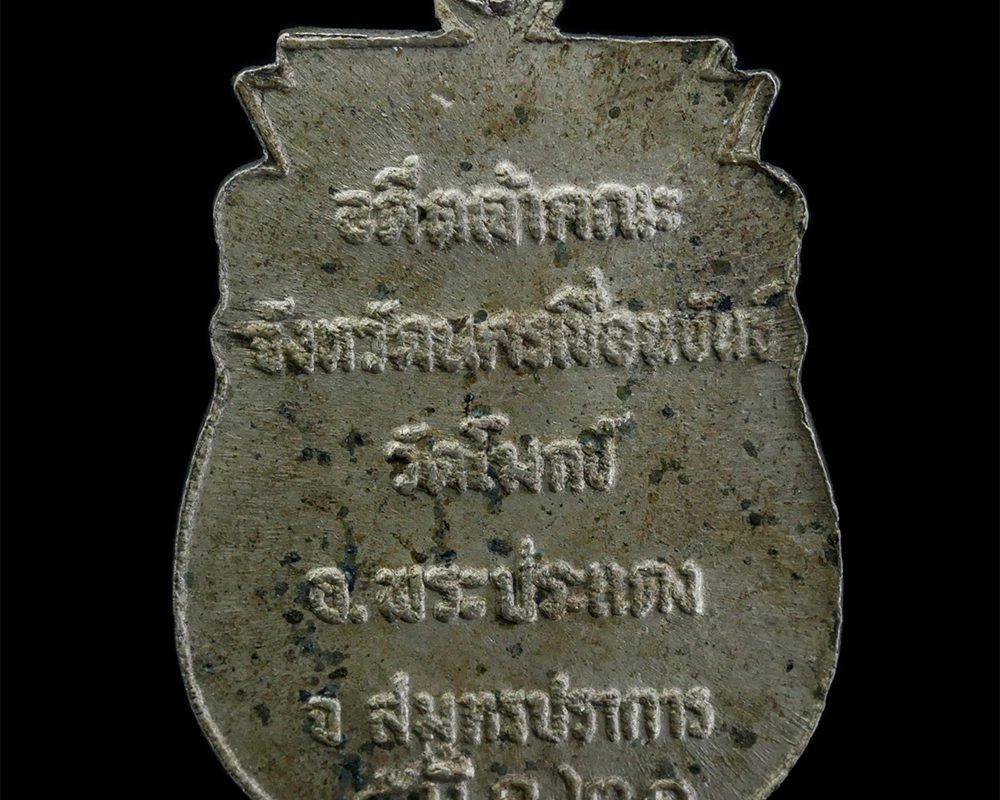 อดีตเจ้าคณะ
จังหวัดนครเขื่อนขันธ์
วัดโมกข์
อ.พระประแดง
จ สมุทรปราการ